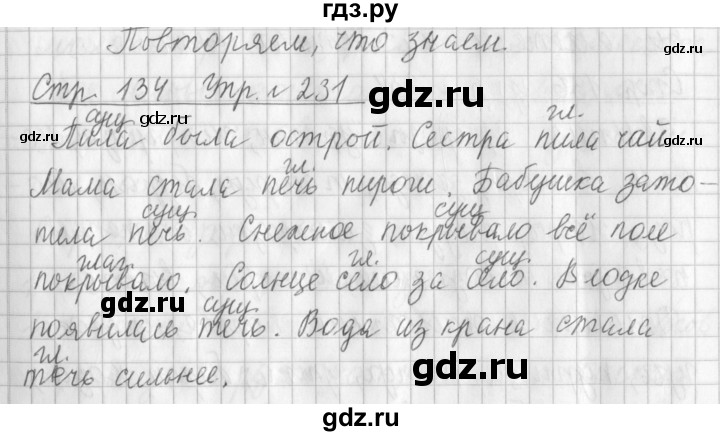 гдз.ру
Повторяем, что знаем.
Стр. 134 Упр. № 231
gdz.ru
gdz.ru
сущ. гл.
gdz.ru
gdz.ru
Пила была острой. Сестра пила чай.
гл.
Мама стала печь пироги. Бабушка зато-
сущ. сущ.
пила печь. Снежное покрывало всё поле
глаг. гл. сущ.
покрывало. Солнце село за село. В лодке
gdz.ru
gdz.ru
сущ.
появилась течь. Вода из крана стала
gdz.ru
гл.
течь сильнее.
gdz.ru
gdz.ru